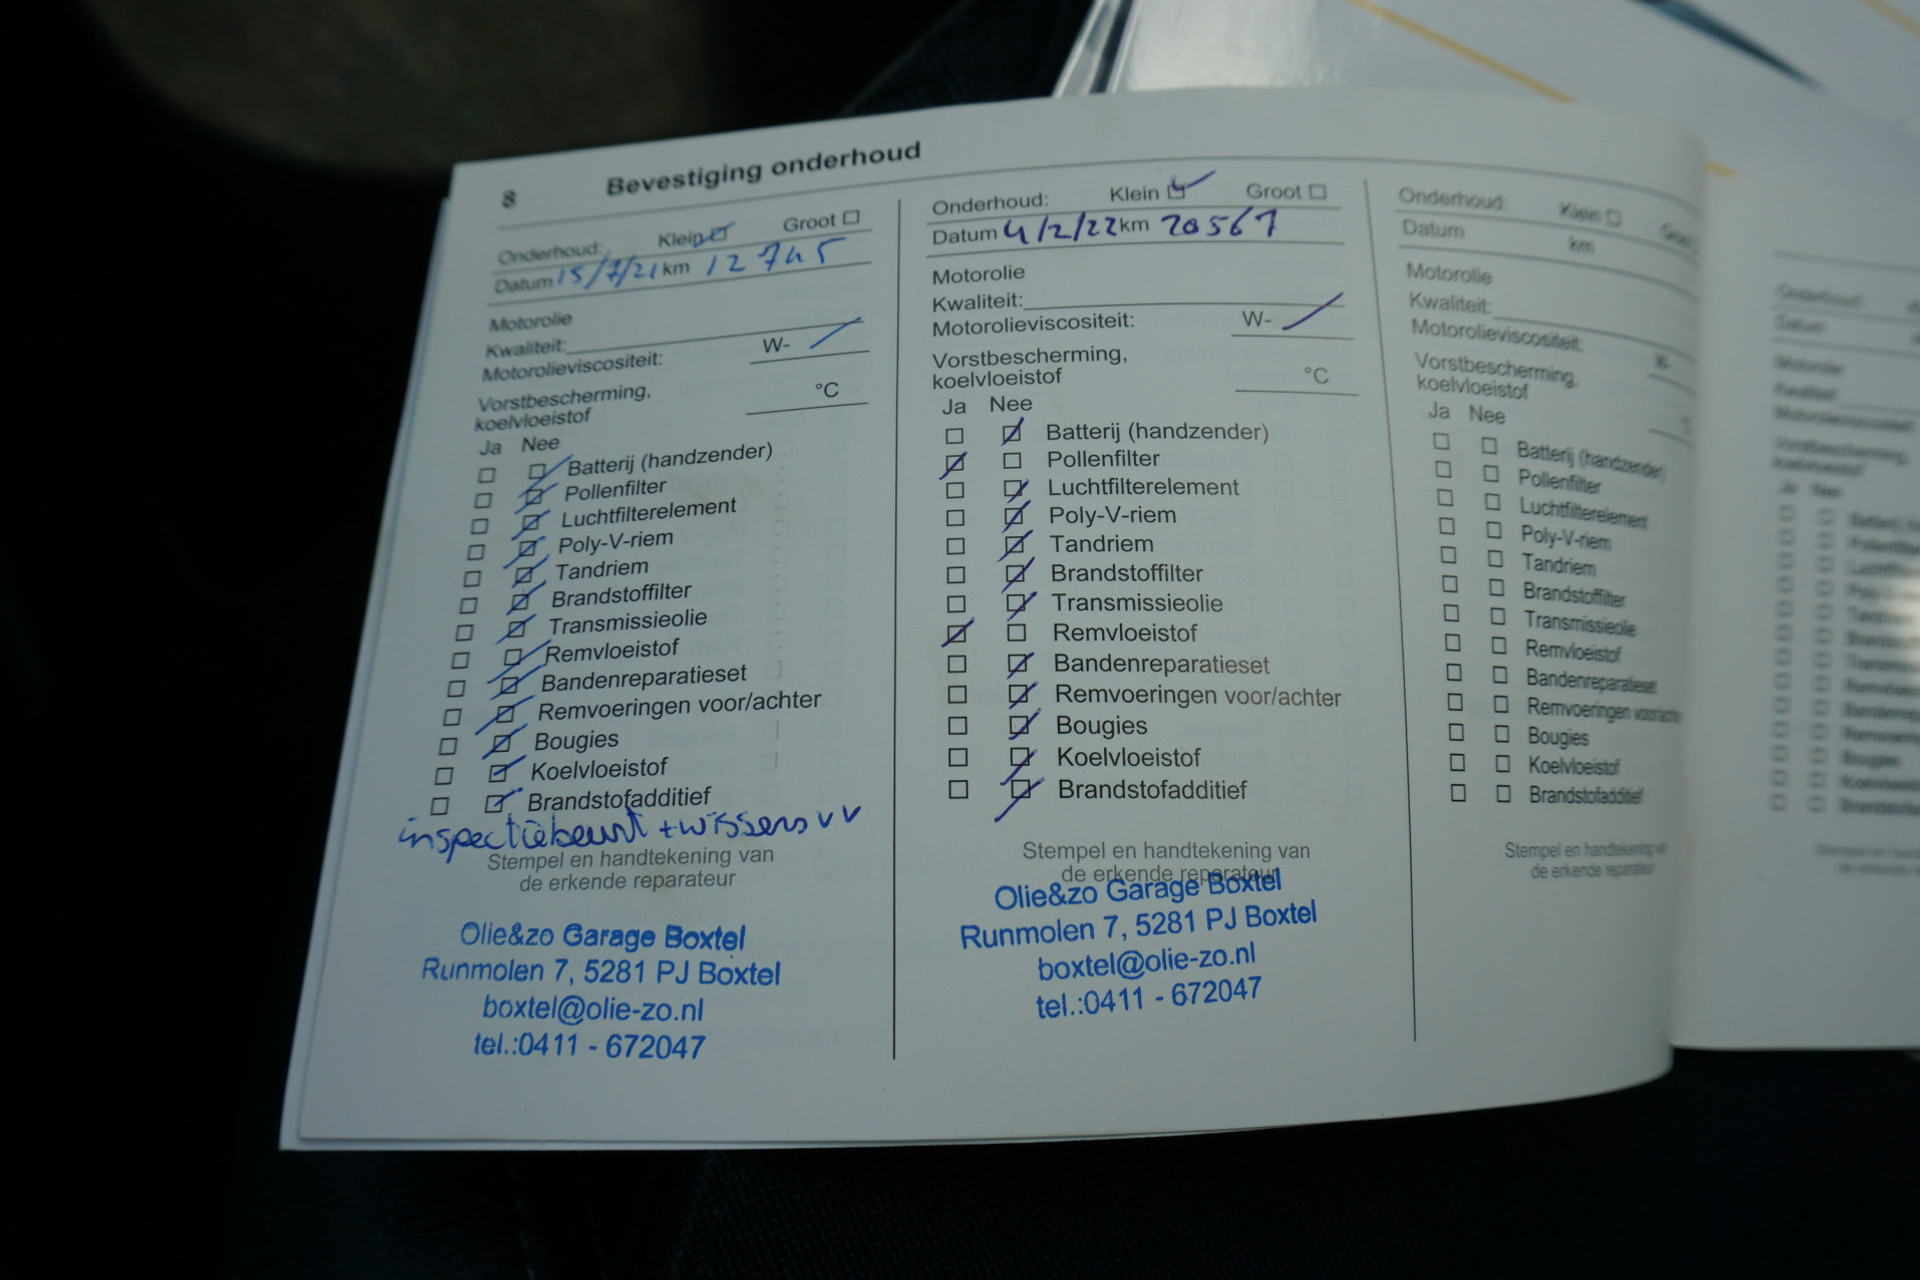 8 Bevestiging onderhoud
Onderhoud: Klein Groot
Datum 15/7/21 km 12745
Motorolie
Kwaliteit:
Motorolieviscositeit: W-
Vorstbescherming,
koelvloeistof °C
Ja Nee
Batterij (handzender)
Pollenfilter
Luchtfilterelement
Poly-V-riem
Tandriem
Brandstoffilter
Transmissieolie
Remvloeistof
Bandenreparatieset
Remvoeringen voor/achter
Bougies
Koelvloeistof
Brandstofadditief
inspectiebeurt + wissers vv
Stempel en handtekening van
de erkende reparateur
Olie&zo Garage Boxtel
Runmolen 7, 5281 PJ Boxtel
boxtel@olie-zo.nl
tel.:0411 - 672047
Onderhoud: Klein Groot
Datum 4/2/22 km 20567
Motorolie
Kwaliteit:
Motorolieviscositeit: W-
Vorstbescherming,
koelvloeistof °C
Ja Nee
Batterij (handzender)
Pollenfilter
Luchtfilterelement
Poly-V-riem
Tandriem
Brandstoffilter
Transmissieolie
Remvloeistof
Bandenreparatieset
Remvoeringen voor/achter
Bougies
Koelvloeistof
Brandstofadditief
Stempel en handtekening van
de erkende reparateur
Olie&zo Garage Boxtel
Runmolen 7, 5281 PJ Boxtel
boxtel@olie-zo.nl
tel.:0411 - 672047
Onderhoud: Klein
Datum km
Motorolie
Kwaliteit:
Motorolieviscositeit: W-
Vorstbescherming,
koelvloeistof
Ja Nee
Batterij (handzender)
Pollenfilter
Luchtfilterelement
Poly-V-riem
Tandriem
Brandstoffilter
Transmissieolie
Remvloeistof
Bandenreparatieset
Remvoeringen voor/achter
Bougies
Koelvloeistof
Brandstofadditief
Stempel en handtekening
de erkende reparateur